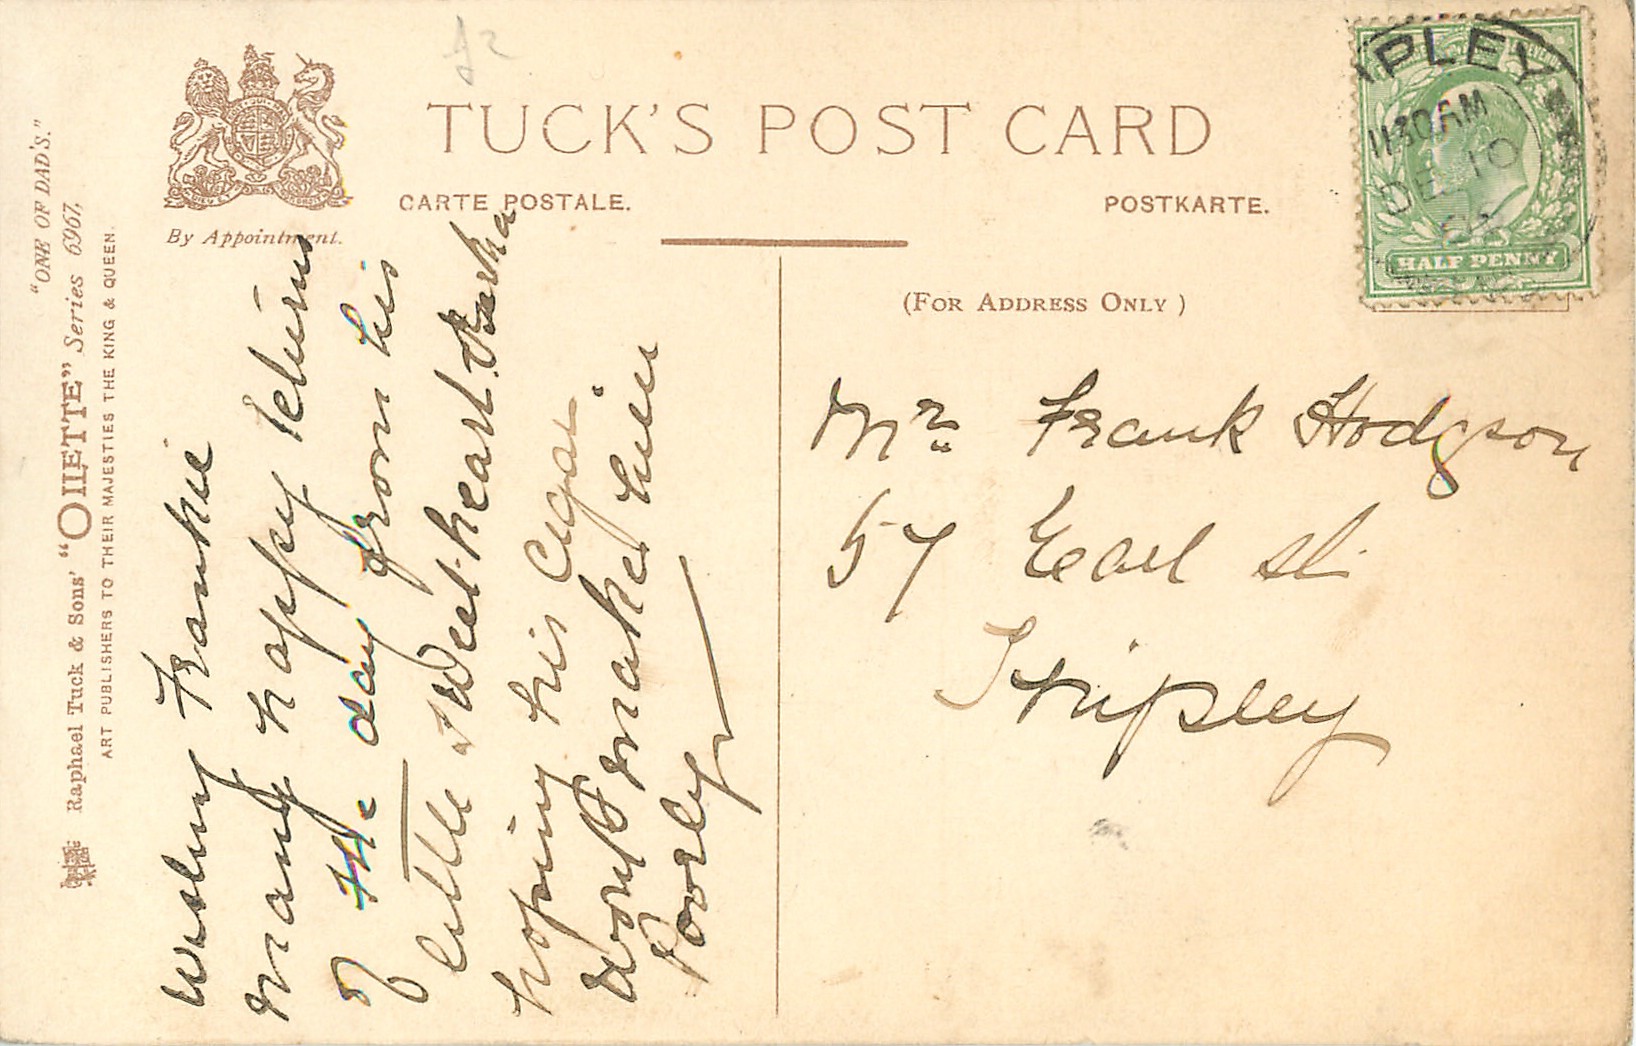 TUCK'S POST CARD
CARTE POSTALE.
POSTKARTE.
By Appointment.
(FOR ADDRESS ONLY)
"ONE OF DAD'S."
Raphael Tuck & Sons' "OILETTE" Series 6967.
ART PUBLISHERS TO THEIR MAJESTIES THE KING & QUEEN.
PLEY
1130AM
DE 10
HALF PENNY
Wishing Frankie
many happy returns
of the day from his
little Sweetheart
hoping his Cigar
wont make him
Poorly
Mr. Frank Hodgson
57 Earl St
Shipley